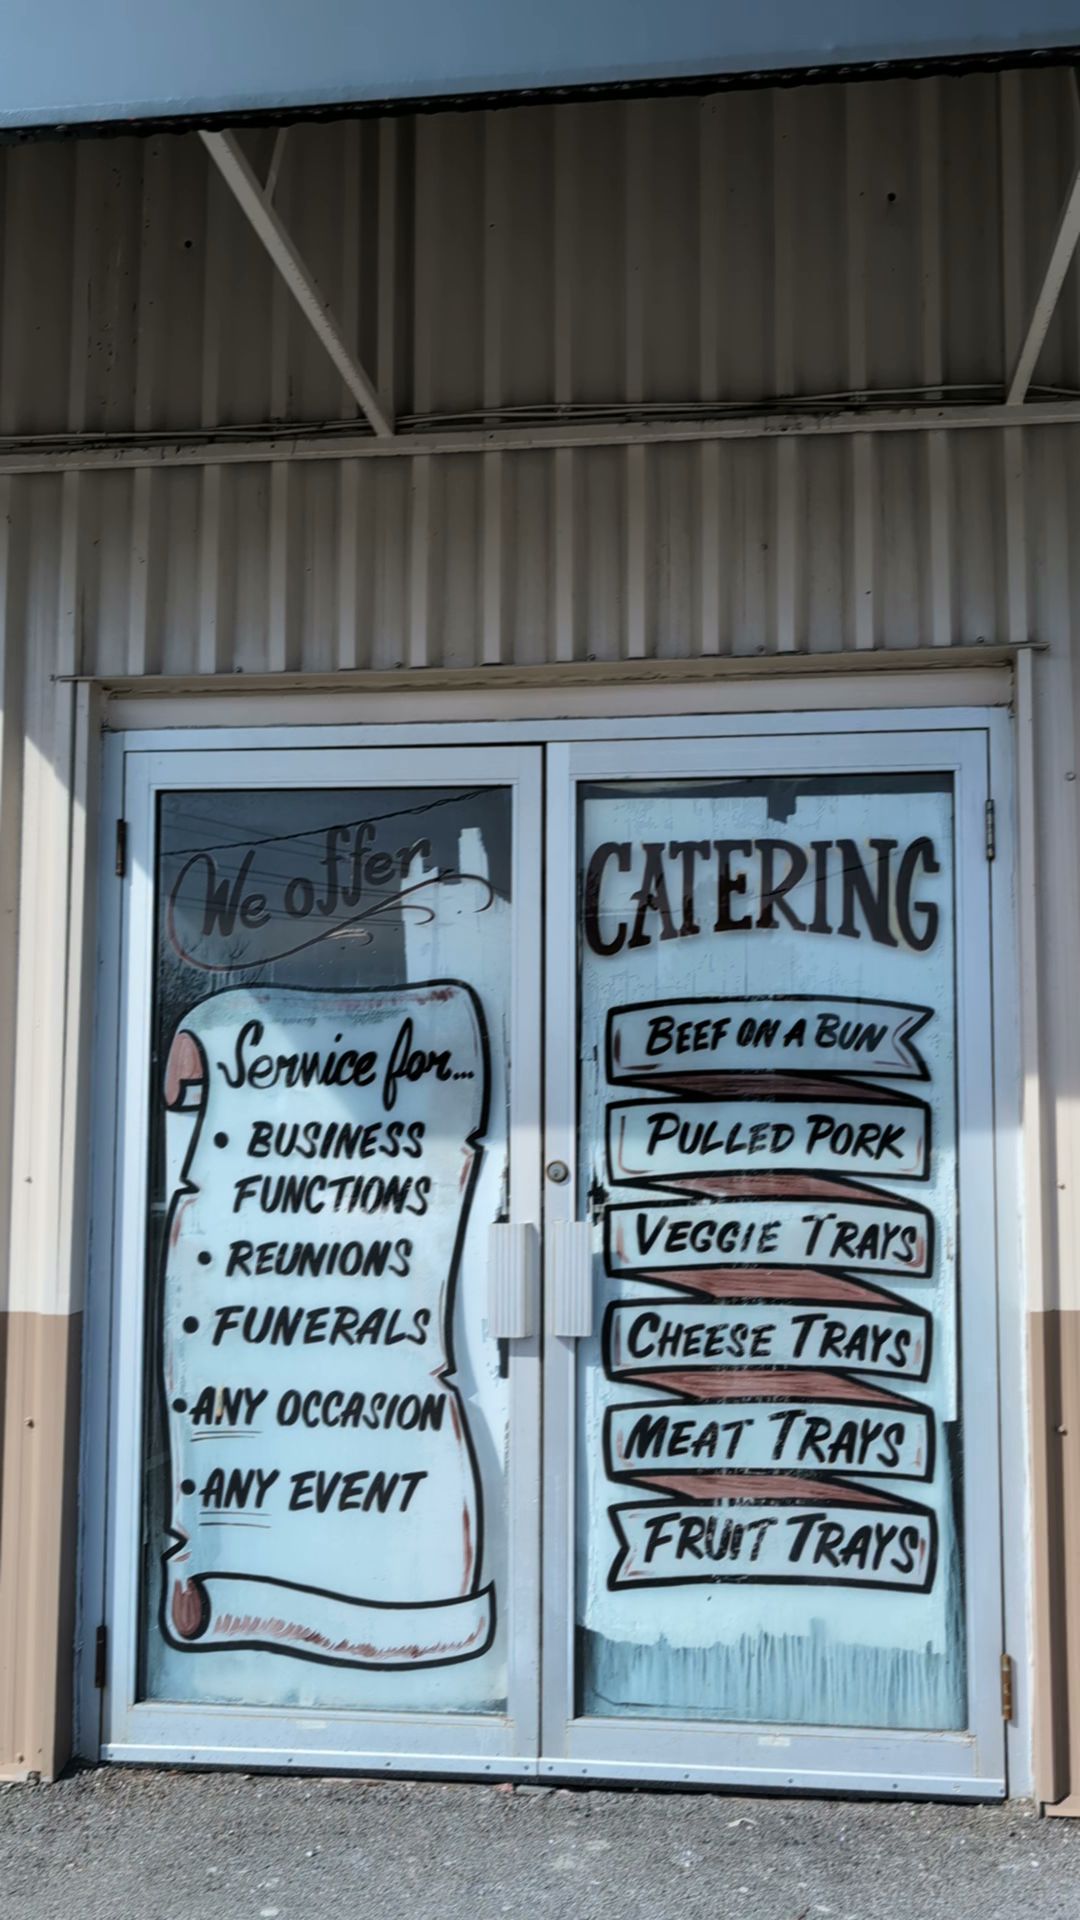 We offer
CATERING
Service for...
• BUSINESS
FUNCTIONS
• REUNIONS
• FUNERALS
• ANY OCCASION
• ANY EVENT
BEEF ON A BUN
PULLED PORK
VEGGIE TRAYS
CHEESE TRAYS
MEAT TRAYS
FRUIT TRAYS